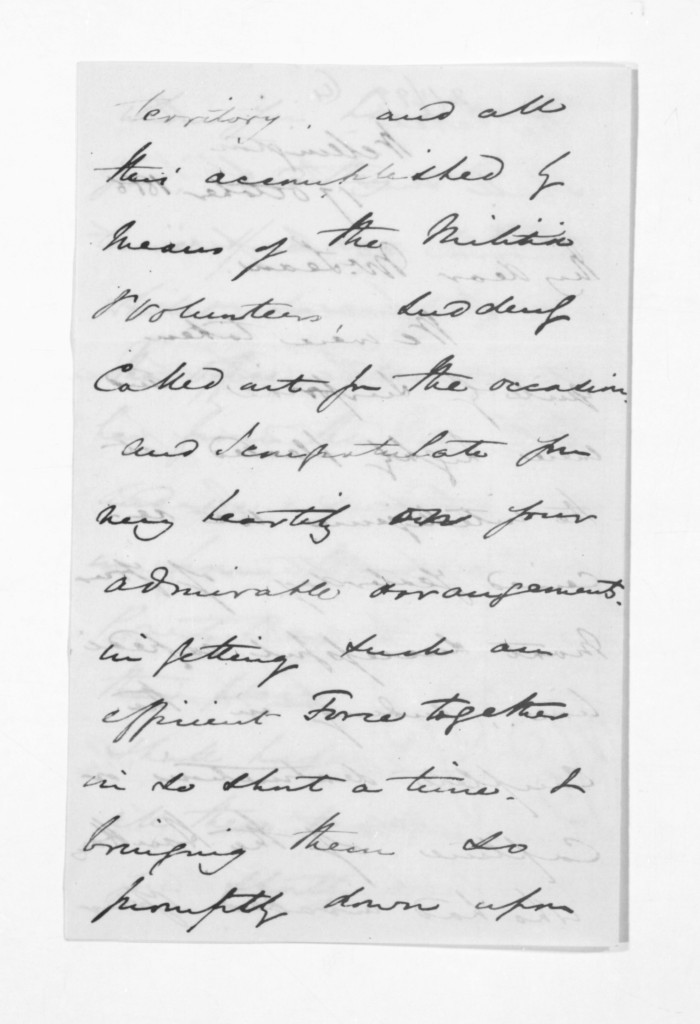 territory. and all
this accomplished by
means of the Militia
& Volunteers suddenly
Called out for the occasion.
and I congratulate you
very heartily on your
admirable arrangements.
in getting such an
efficient Force together
in so short a time. &
bringing them so
promptly down upon